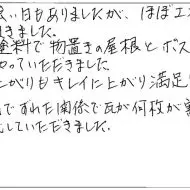 悪い日もありましたが、ほぼエ
頂きました。
塗料で物置きの屋根とポス
やっていただきました。
上がりもキレイに上がり満足
でずれた関係で瓦が何枚か
していただきました。